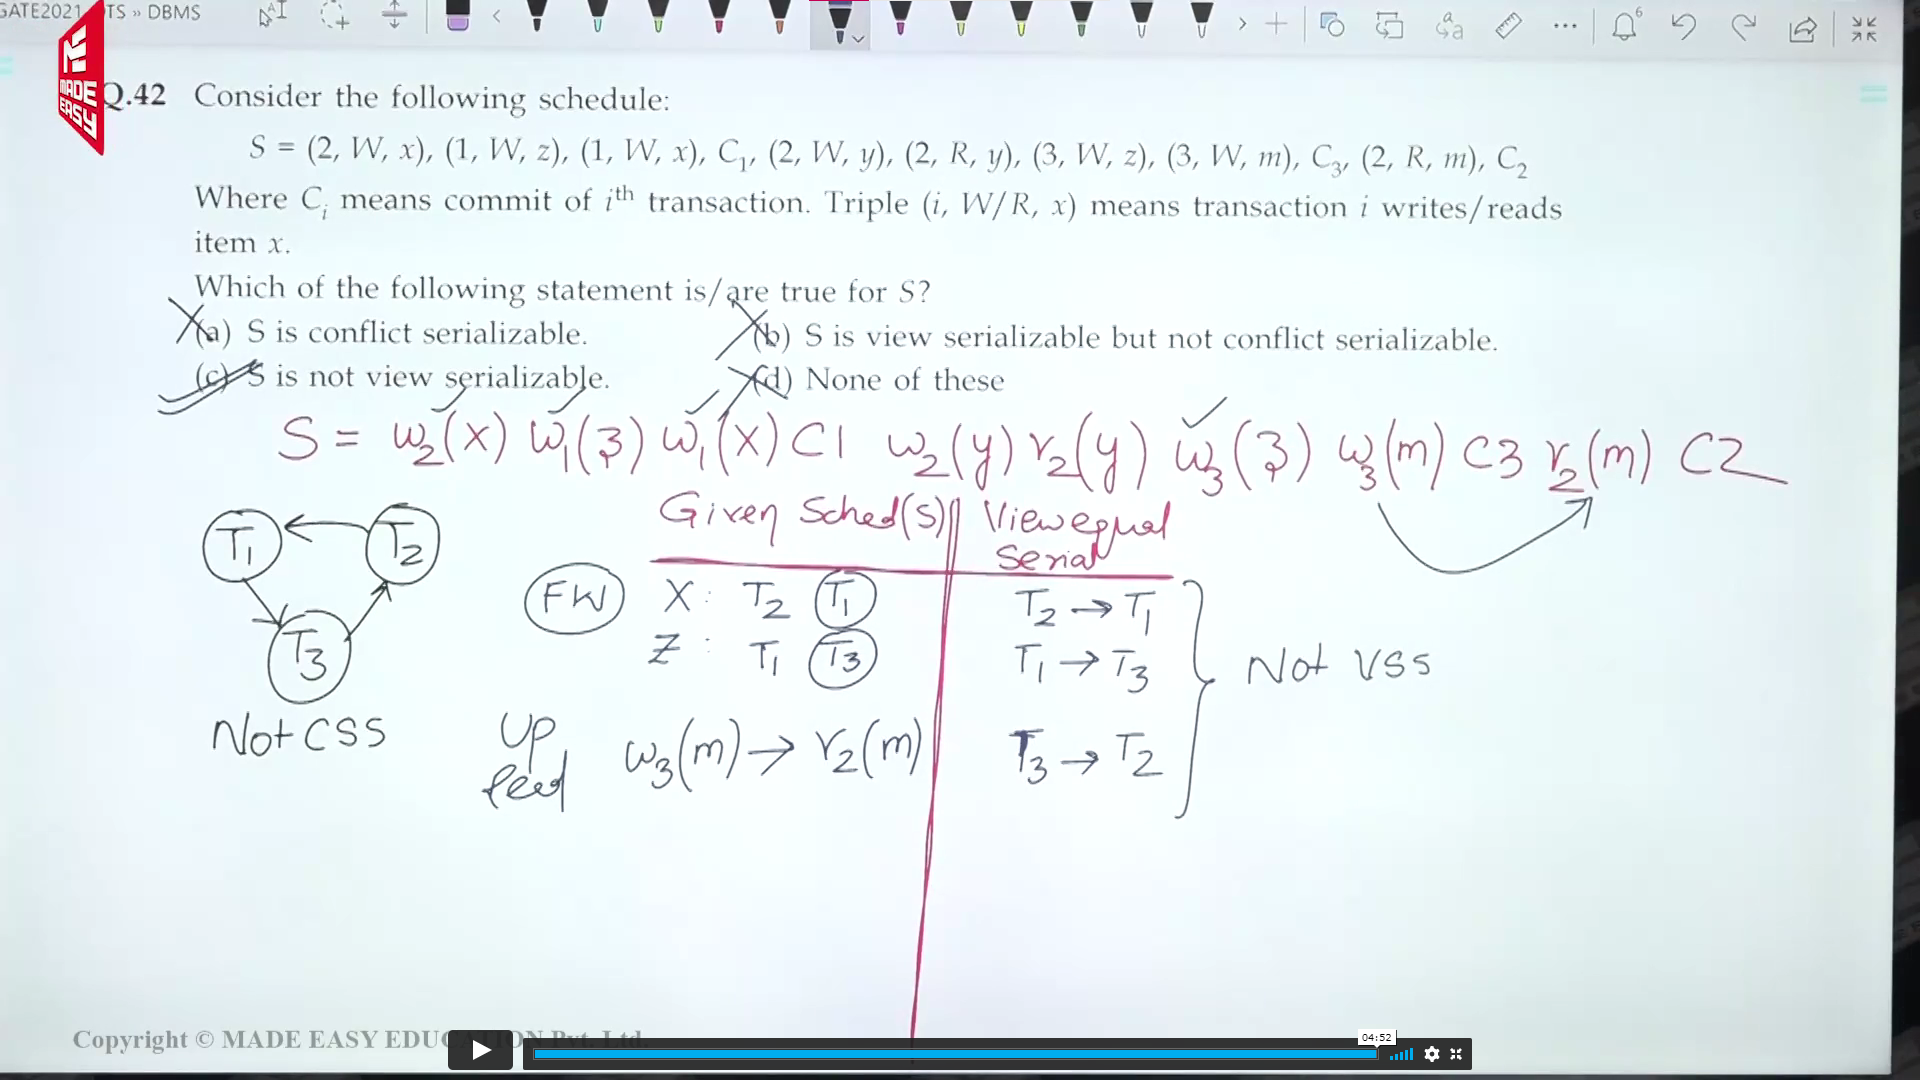 GATE2021 OTS » DBMS
MADE
EASY
Q.42 Consider the following schedule:
S = (2, W, x), (1, W, z), (1, W, x), C₁, (2, W, y), (2, R, y), (3, W, z), (3, W, m), C₃, (2, R, m), C₂
Where Cᵢ means commit of iᵗʰ transaction. Triple (i, W/R, x) means transaction i writes/reads
item x.
Which of the following statement is/are true for S?
(a) S is conflict serializable. (b) S is view serializable but not conflict serializable.
(c) S is not view serializable. (d) None of these
S = w₂(x) w₁(z) w₁(x) C1 w₂(y) r₂(y) w₃(z) w₃(m) C3 r₂(m) C2
Given Sched(S) View equal
Serial
T₁ T₂
T₃
Not CSS
FW X: T₂ T₁ T₂ → T₁
Z: T₁ T₃ T₁ → T₃
Not VSS
Up w₃(m) → r₂(m) T₃ → T₂
Read
Copyright © MADE EASY EDUCATION Pvt. Ltd.
04:52